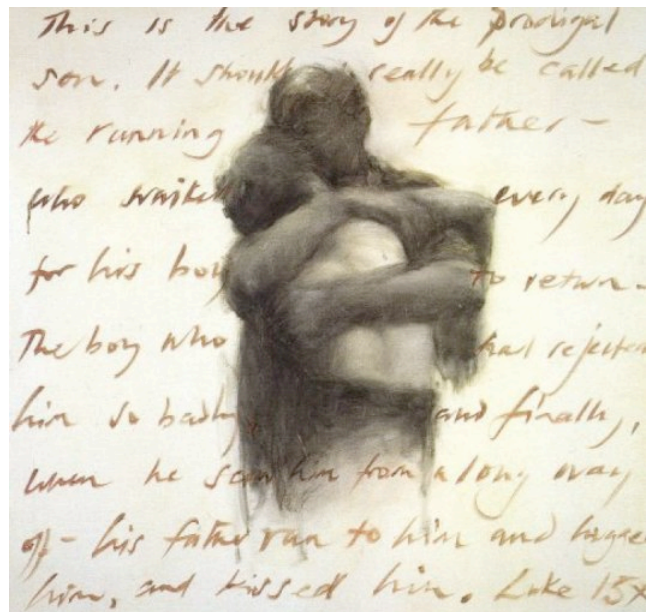 This is the story of the prodigal
son. It should really be called
the running father-
who waited every day
for his boy to return-
The boy who had rejected
him so badly, and finally,
when he saw him from a long way
off- his father ran to him and hugged
him, and kissed him. Luke 15